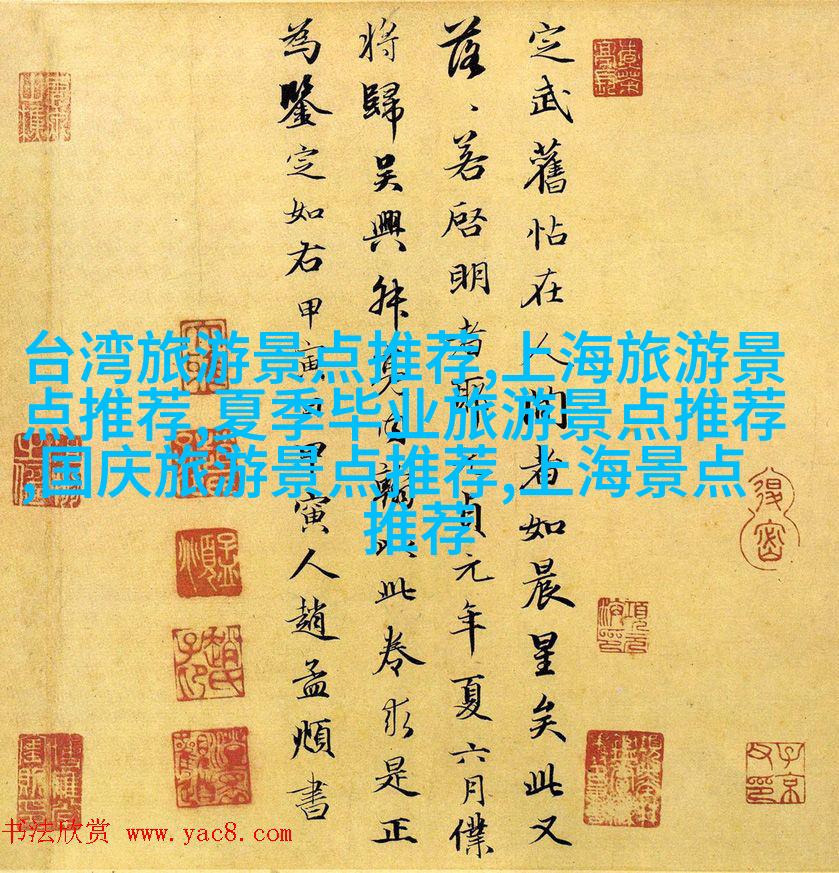 台湾旅游景点推荐,上海旅游景
点推荐,夏季毕业旅游景点推荐
,国庆旅游景点推荐,上海景点
推荐
定武舊帖在人間者如晨星矣此又
落、若啓明者耶元貞元年夏六月僕
將歸吳興叔亮内翰以此卷求是正
為鑒定如右甲寅日甲寅人趙孟頫書
书法欣赏 www.yac8.com